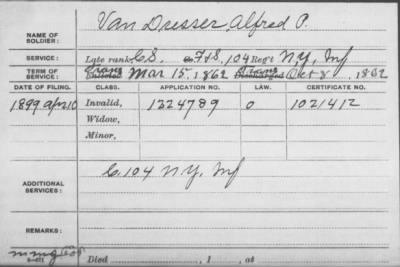 NAME OF SOLDIER: Van Dresser, Alfred P.
SERVICE: Late rank, C.S. F&S, 104 Reg't N.Y. Inf
TERM OF SERVICE: Enlisted Mar 15, 1862 Discharged Oct 8, 1862
DATE OF FILING. CLASS. APPLICATION NO. LAW. CERTIFICATE NO.
1899 Apr 10 Invalid, 1224789 O 1021412
Widow,
Minor,
ADDITIONAL SERVICES: C. 104 N.Y. Inf
REMARKS:
Died , 1 , at